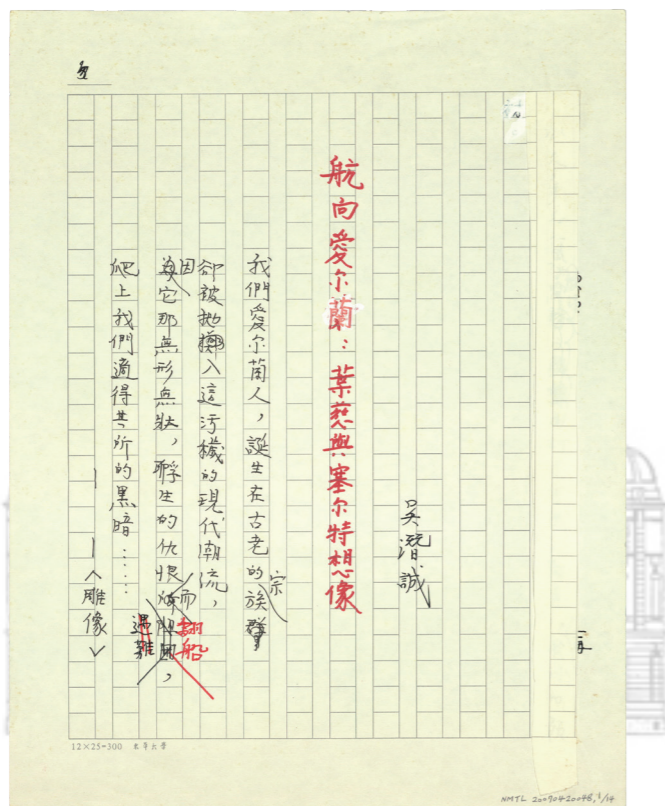 航向愛尔蘭：葉慈與塞尔特想像
吳潛誠
我們愛尔蘭人，誕生在古老的族群
宗
卻被拋擲入這污穢的現代潮流，
因它那無形無狀，孵生的仇恨
而
翻船
遇難
爬上我們適得其所的黑暗……
——〈雕像〉
12×25=300
NMTL 20090420048, 1/14